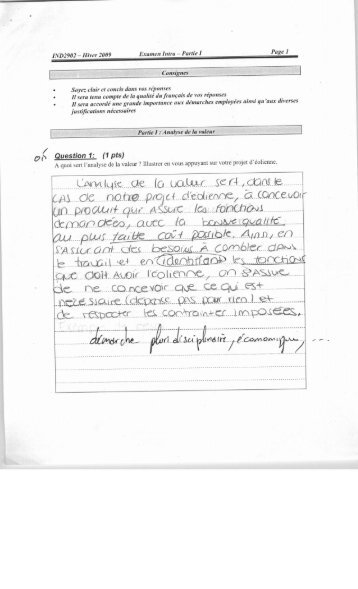 IND2902 – Hiver 2009 Examen Intra – Partie I Page 1
Consignes
• Soyez clair et concis dans vos réponses
• Il sera tenu compte de la qualité du français de vos réponses
• Il sera accordé une grande importance aux démarches employées ainsi qu'aux diverses
justifications nécessaires
Partie I : Analyse de la valeur
ok Question 1: (1 pts)
À quoi sert l'analyse de la valeur ? Illustrer en vous appuyant sur votre projet d'éolienne.
L'analyse de la valeur sert, dans le
cas de notre projet d'éolienne, à concevoir
un produit qui assure les fonctions
demandées, avec la bonne qualité
au plus faible coût possible. Ainsi, en
s'assurant des besoins à combler dans
le travail et en identifiant les fonctions
que doit avoir l'éolienne, on s'assure
de ne concevoir que ce qui est
nécessaire (dépense pas pour rien) et
de respecter les contraintes imposées.
démarche pluridisciplinaire, économique, ...